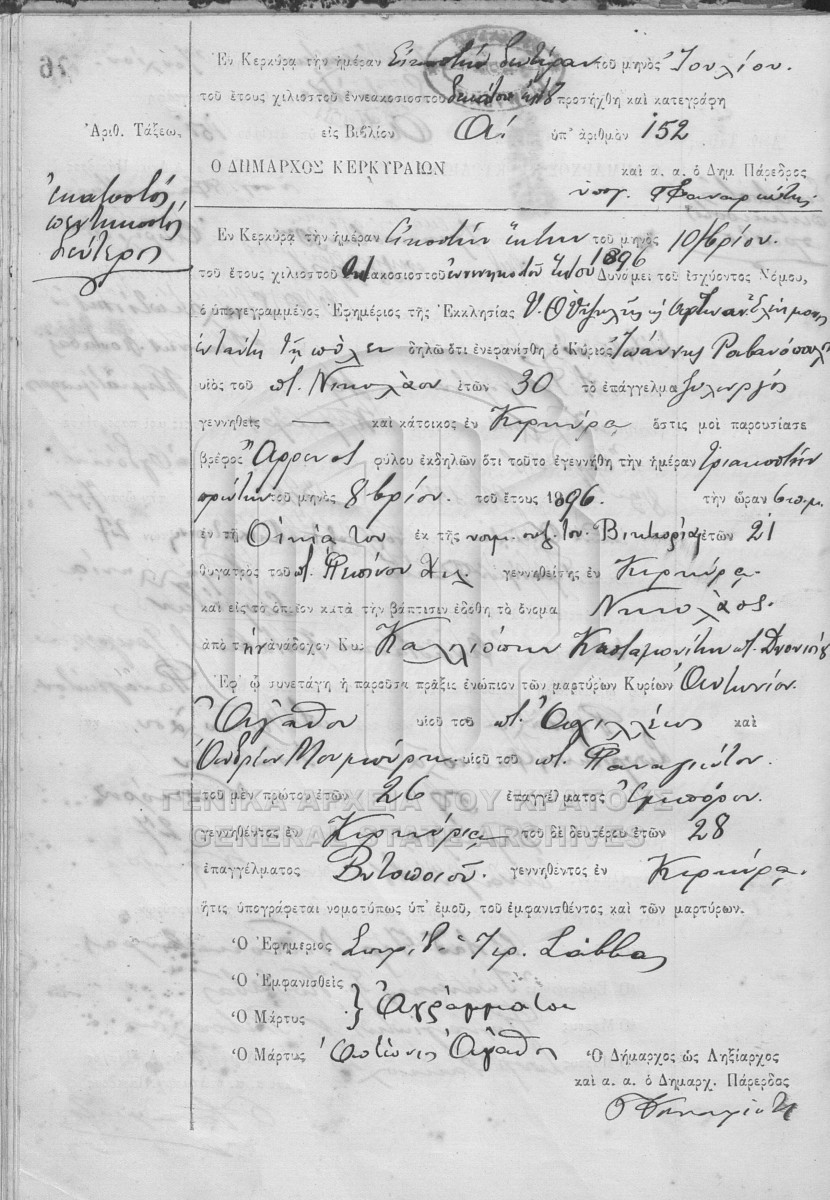 26
Ἐν Κερκύρᾳ τὴν ἡμέραν Εἰκοστὴν δευτέραν τοῦ μηνὸς Ἰουλίου.
τοῦ ἔτους χιλιοστοῦ ἐννεακοσιοστοῦ προσήχθη καὶ κατεγράφη
Ἀριθ. Τάξεως εἰς Βιβλίον Α! ὑπ' ἀριθμὸν 152
Ο ΔΗΜΑΡΧΟΣ ΚΕΡΚΥΡΑΙΩΝ καὶ α. α. ὁ Δημ Πάρεδρος
ἑκατοστὸς
πεντηκοστὸς
δεύτερος
υπογ.
Ἐν Κερκύρᾳ τὴν ἡμέραν εἰκοστὴν ἕκτην τοῦ μηνὸς 10/βρίου.
1896
τοῦ ἔτους χιλιοστοῦ ὀκτακοσιοστοῦ ἐνενηκοστοῦ ἕκτου Δυνάμει τοῦ ἰσχύοντος Νόμου,
ὁ ὑπογεγραμμένος Ἐφημέριος τῆς Ἐκκλησίας
ἐνταύθα τῇ πόλει δηλῶ ὅτι ἐνεφανίσθη ὁ Κύριος Ἰωάννης
υἱὸς τοῦ π. Νικολάου ἐτῶν 30 τὸ ἐπάγγελμα ξυλουργὸς
γεννηθεὶς — καὶ κάτοικος ἐν Κερκύρᾳ ὅστις μοὶ παρουσίασε
βρέφος Ἄρρενος φύλου ἐκδηλῶν ὅτι τοῦτο ἐγεννήθη τὴν ἡμέραν τριακοστὴν
πρώτην τοῦ μηνὸς 8βρίου. τοῦ ἔτους 1896. τὴν ὥραν 6 π.μ.
ἐν τῇ Οἰκίᾳ του ἐκ τῆς νομ. συζ. του Βικτωρίας ἐτῶν 21
θυγατρὸς τοῦ π. γεννηθείσης ἐν Κερκύρᾳ.
καὶ εἰς τὸ ὁποῖον κατὰ τὴν βάπτισιν ἐδόθη τὸ ὄνομα Νικολάος.
ἀπὸ τὴν ἀνάδοχον Κυρ Καλλιόπην π. Διονυσίου
Ἐφ' ᾧ συνετάγη ἡ παροῦσα πρᾶξις ἐνώπιον τῶν μαρτύρων Κυρίων Ἀντωνίου
Ἀγάθου υἱοῦ τοῦ π. Ἀχιλλέως καὶ
Ἀνδρέου υἱοῦ τοῦ π. Παναγιώτου.
τοῦ μὲν πρώτου ἐτῶν 26 ἐπαγγέλματος Ἐμπόρου.
γεννηθέντος ἐν Κερκύρᾳ τοῦ δὲ δευτέρου ἐτῶν 28
ἐπαγγέλματος Βυτοποιοῦ. γεννηθέντος ἐν Κερκύρᾳ.
ἥτις ὑπογράφεται νομοτύπως ὑπ' ἐμοῦ, τοῦ ἐμφανισθέντος καὶ τῶν μαρτύρων.
Ὁ Ἐφημέριος Σπυρίδ. Ἱερ. Σάββας
Ὁ Ἐμφανισθεὶς
Ὁ Μάρτυς } Ἀγράμματοι
Ὁ Μάρτυς Ἀντώνιος Ἀγάθος
Ὁ Δήμαρχος ὡς Ληξίαρχος
καὶ α. α. ὁ Δημαρχ. Πάρεδρος
ΓΕΝΙΚΑ ΑΡΧΕΙΑ ΤΟΥ ΚΡΑΤΟΥΣ
GENERAL STATE ARCHIVES